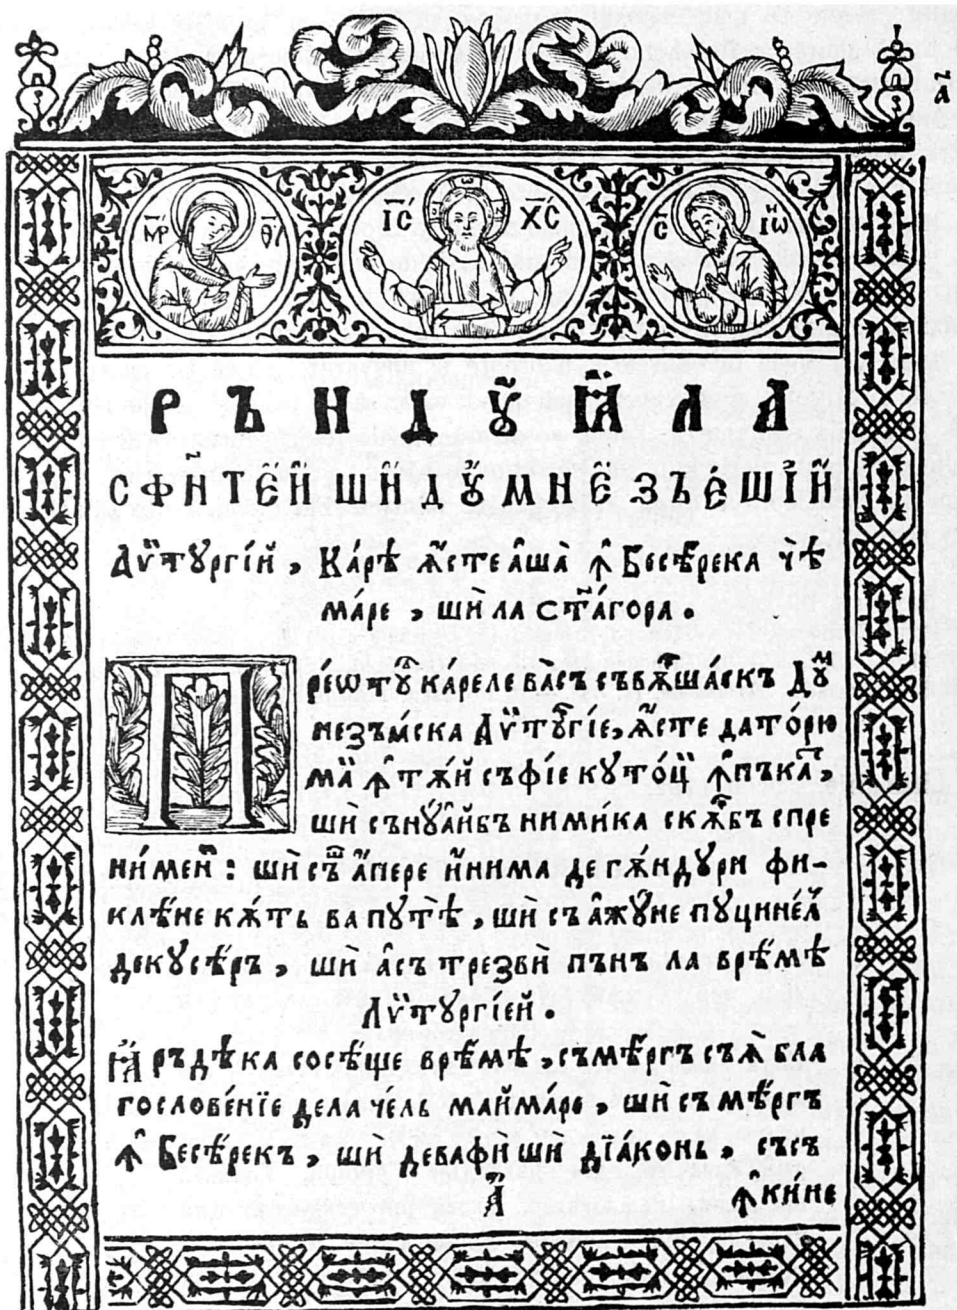 а҃
М҃Р Ѳ҃У І҃С Х҃С С҃ ІѠ
РЪНДꙊꙖЛА
СФИ҆ТЕ҆И҆ ШИ҆ ДꙊМНЕ҆ЗЪЕ҆ШІ҆Й
Лѷтꙋргі́й, Ка́рѣ ꙗ҆́сте а҆ша̀ ꙟ҆ Бесѣ́река че́ѣ
ма́ре, шѝ ла ст҃а́гора.
Прео́тꙋⷧ҇ ка́реле ва̀съ съвѫ҆шаскъ Дꙋм
незъꙗ́ска Лѷтꙋгі́е, ꙗ҆́сте дато́рю
маꙵ ꙟ҆тѫ́й съ фі́е кꙋ то́цꙵ ꙟ҆пъкаⷮ,
шѝ сънꙋ а҆́йбъ ними́ка скѫⷬ҇бъ спре
ни́менꙵ: шѝ съш а҆́пере и҆́нима де гѫ́ндꙋри фи-
клѣ́не кѫ́ть ва пꙋтѣ̀, шѝ съ а҆жꙋ́не пꙋцине́л
декꙋсѣ́ръ, шѝ а҆съ трезвѝ пънъ ла врѣ́мѣ
Лѷтꙋргі́ей.
Ꙗ҆ръ дѣ́ка сосѣ́ще врѣ́мѣ, съ мѣ́ргъ съꙗ҆̀ бла
гослове́нїе дела че́ль май ма́ре, шѝ съ мѣ́ргъ
ꙟ҆ Бесѣ́рекъ, шѝ дева фѝ шѝ дїа́конь, съсъ
А҃
ꙟ҆кине